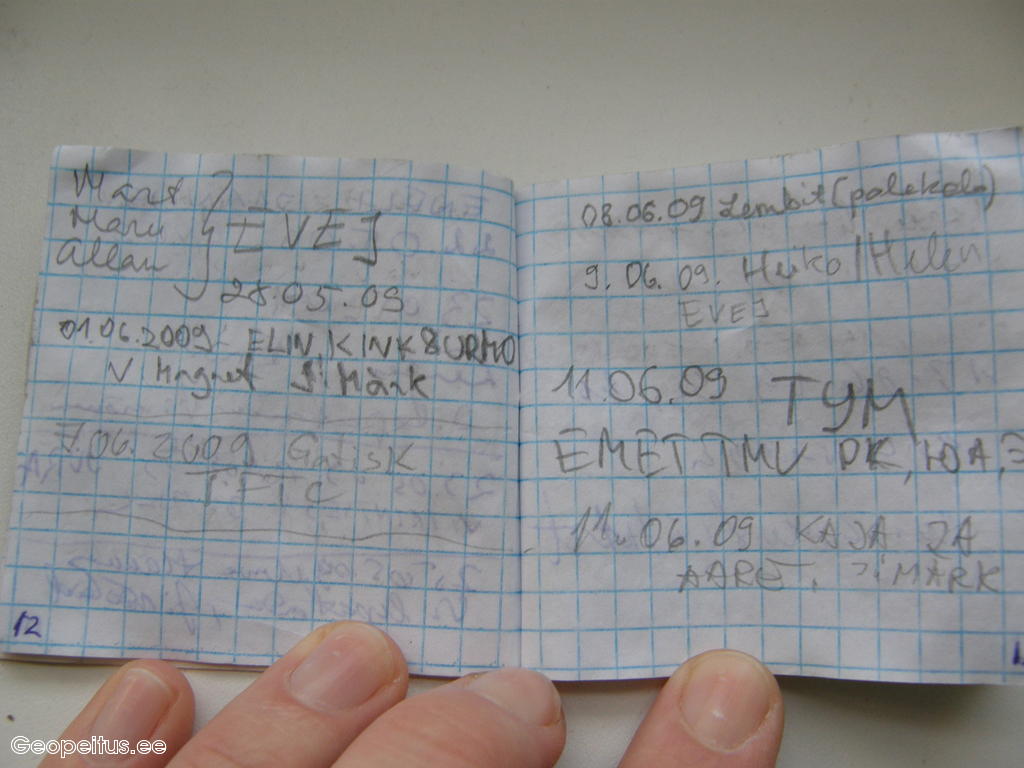 Märt
Manu
Allan
EVEJ
28.05.09
01.06.2009 ELIN KINK & URMO
V Magnet J: Märk
7.06.2009 Gatisk
TFTC
12
08.06.09 Lembit (palukalo)
9.06.09. Heiko / Helen
EVEJ
11.06.09 ТУМ
EMET TMV DK, ЮА, Э
11.06.09 KAJA JA
AARE. J: MÄRK
Geopeitus.ee